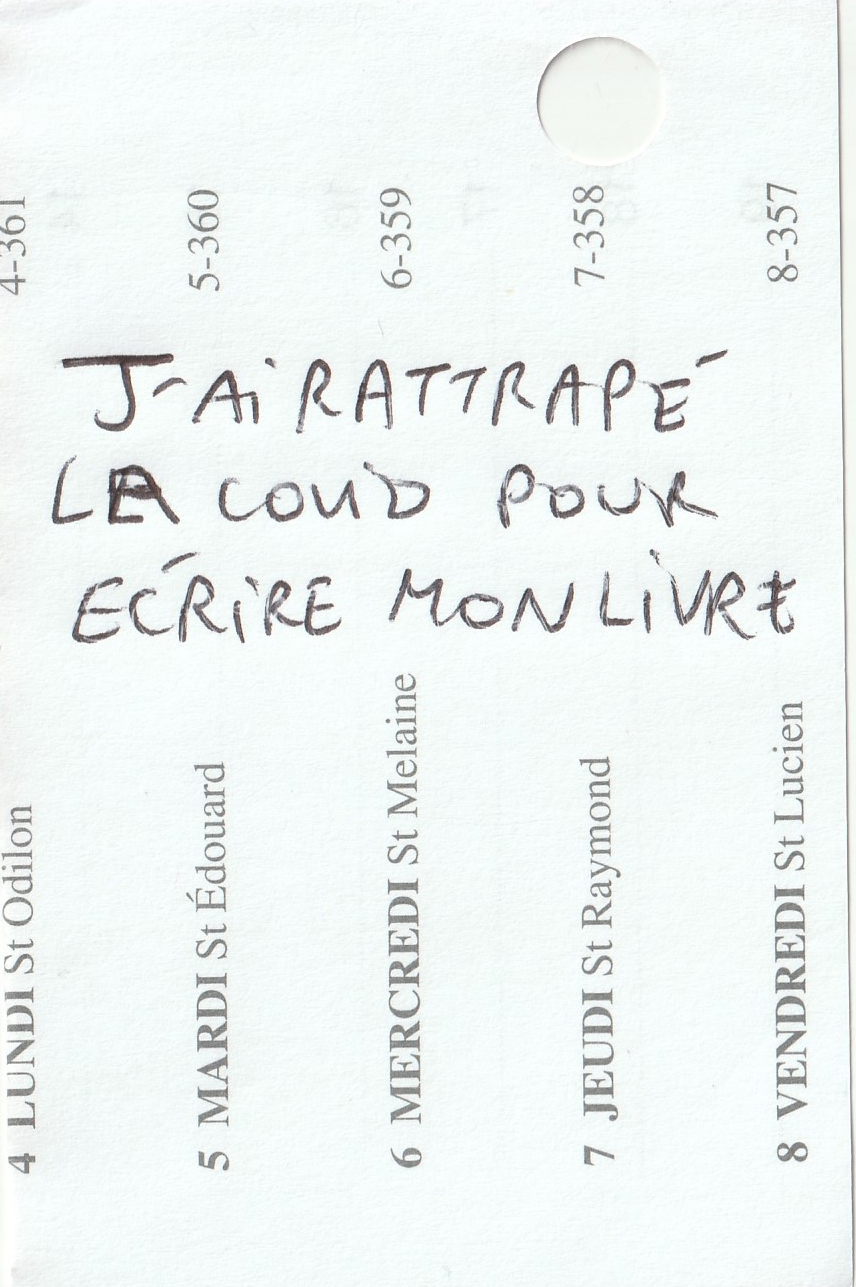 4-361
5-360
6-359
7-358
8-357
J-Ai RATTRAPÉ
LA COUD POUR
ECRiRE MON LiVRE
4 LUNDI St Odilon
5 MARDI St Édouard
6 MERCREDI St Melaine
7 JEUDI St Raymond
8 VENDREDI St Lucien